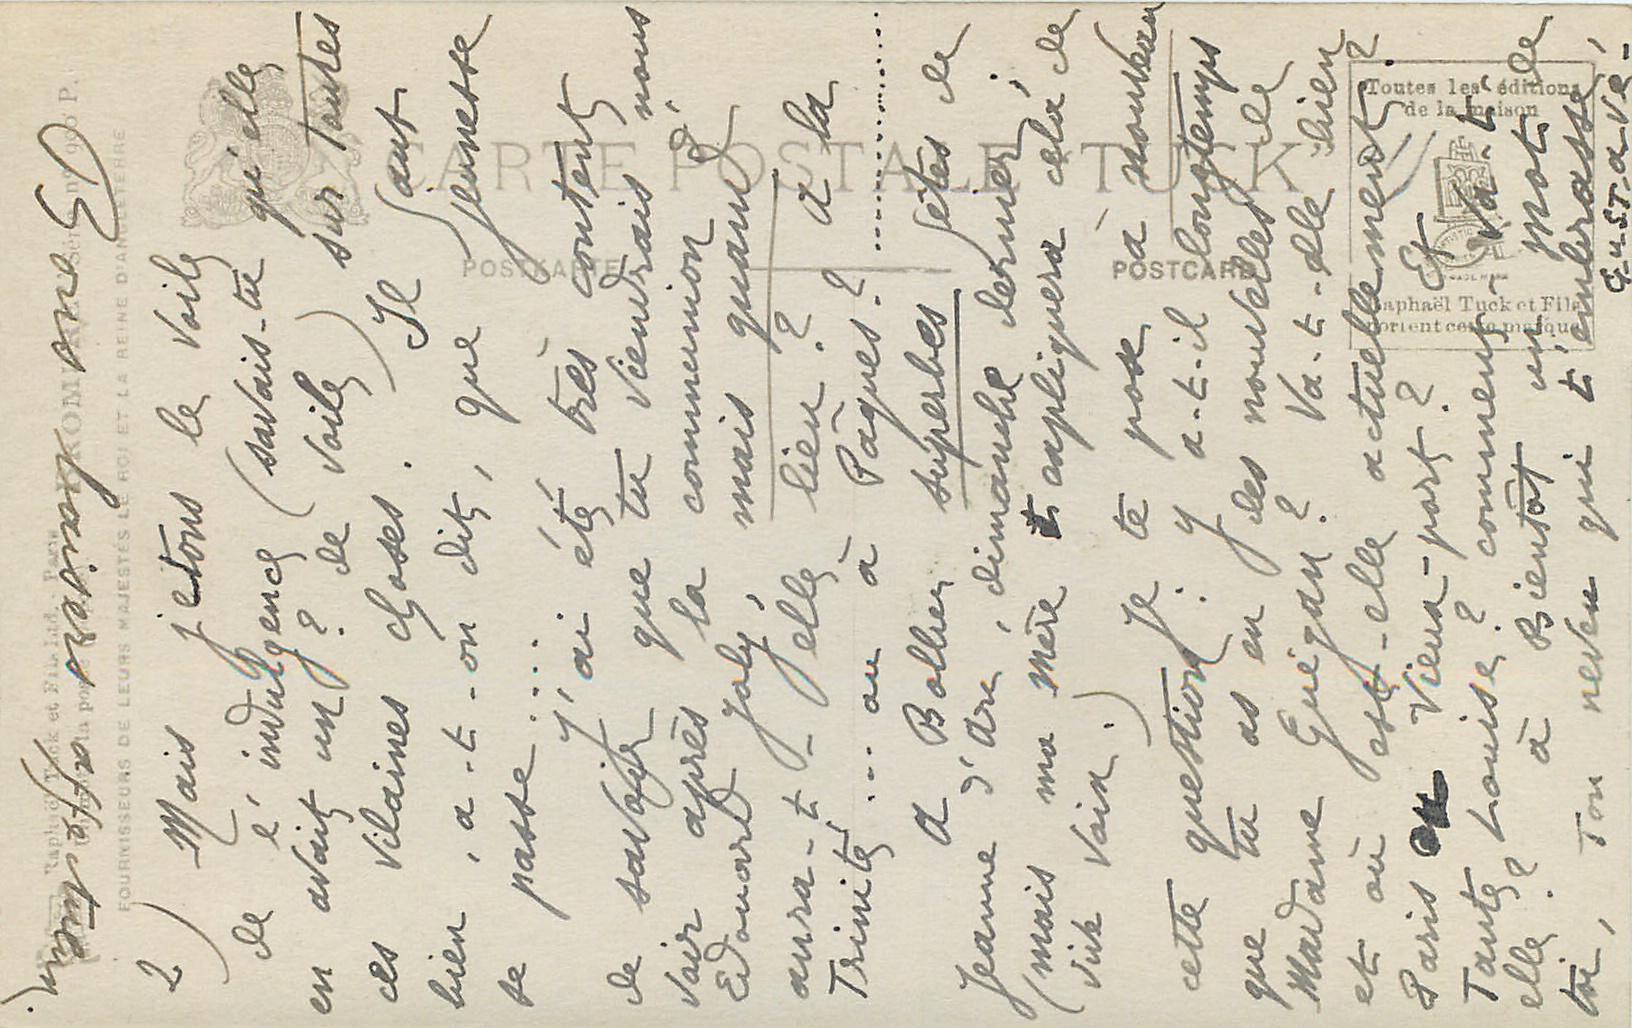 2) Mais jetons le voile
de l'indulgence (savais-tu qu'elle
en avait un ? de voile) sur toutes
ces vilaines choses. Il faut
bien, a-t-on dit, que jeunesse
se passe ....
J'ai été très content
de savoir que tu viendrais nous
voir après la communion d'
Edouard Joly, mais quand
aura-t-elle lieu ? à la
Trinité .... ou à Pâques ? ..........
A Bolbec superbes fêtes de
Jeanne d'Arc, dimanche dernier,
(mais ma mère t'expliquera cela de
vive voix.)
Je te pose à nouveau
cette question : y a-t-il longtemps
que tu as eu des nouvelles de
Madame Guégan ? Va-t-elle bien
et où est-elle actuellement ?
Paris ou Vieux-port ? Et
Tante Louise ? comment va-t-
elle ? à Bientôt un mot de
toi, Ton neveu qui t'embrasse,
Gustave.
CARTE POSTALE TUCK
POSTKARTE
POSTCARD
Toutes les éditions
de la maison
Raphaël Tuck et Fils
portent cette marque
Raphaël Tuck et Fils Ltd. - Paris
FOURNISSEURS DE LEURS MAJESTÉS LE ROI ET LA REINE D'ANGLETERRE